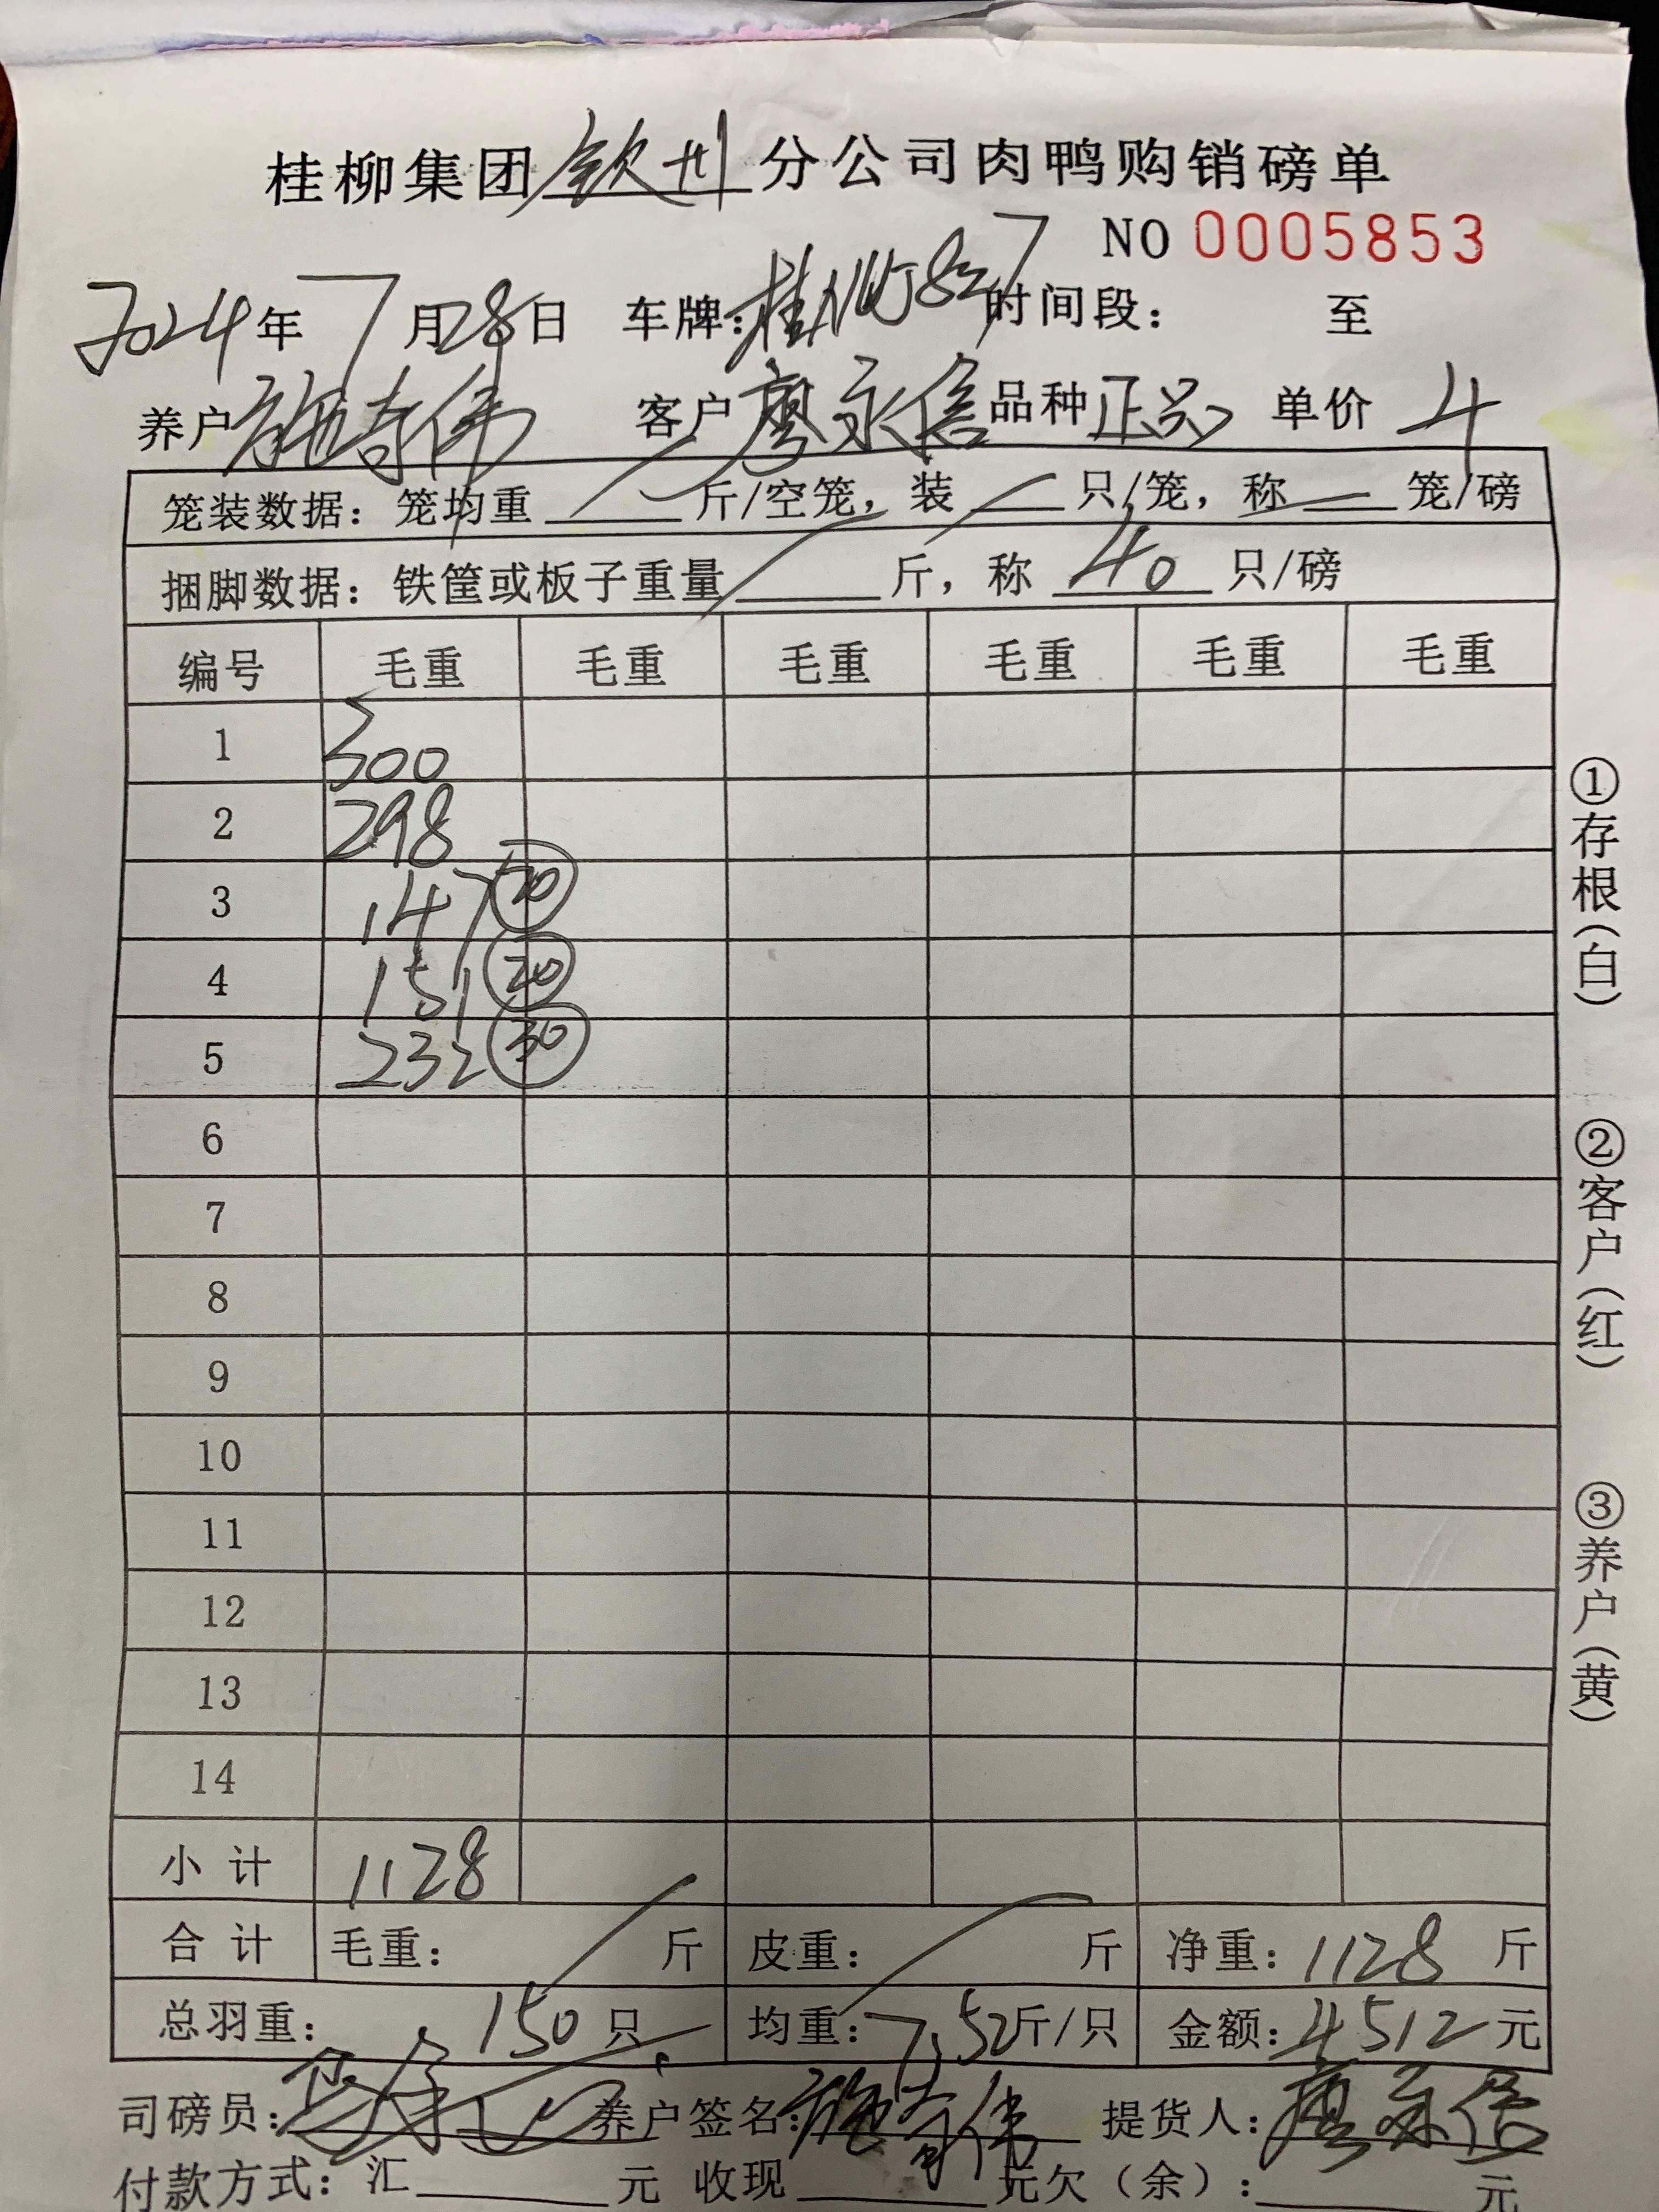 桂柳集团 钦州 分公司肉鸭购销磅单
NO 0005853
2024年7月28日 车牌: 时间段: 至
养户 施奇伟 客户 廖永信 品种 正品 单价 4
笼装数据:笼均重 斤/空笼,装 只/笼,称 笼/磅
捆脚数据:铁筐或板子重量 斤,称 40 只/磅
编号 毛重 毛重 毛重 毛重 毛重 毛重
1 300
2 298
3 147 20
4 151 20
5 232 30
6
7
8
9
10
11
12
13
14
小计 1128
合计 毛重: 斤 皮重: 斤 净重:1128 斤
总羽重: 150 只 均重:7.52斤/只 金额:4512元
司磅员: 养户签名:施奇伟 提货人:廖永信
付款方式:汇 元 收现 元欠(余): 元
①存根(白)
②客户(红)
③养户(黄)